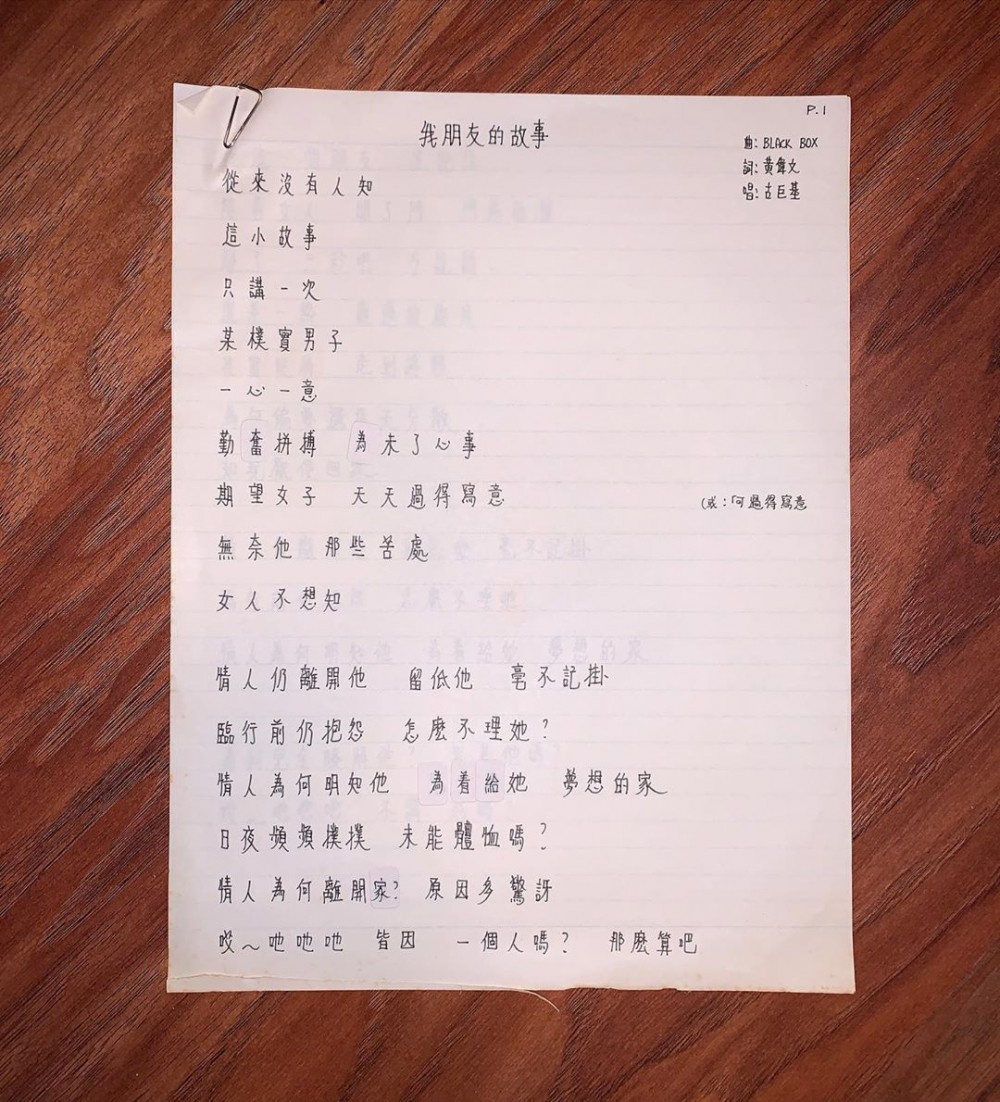 P.1
我朋友的故事
曲: BLACK BOX
詞: 黃偉文
唱: 古巨基
從來沒有人知
這小故事
只講一次
某樸實男子
一心一意
勤奮拼搏 為未了心事
期望女子 天天過得寫意
(或:「可過得寫意
無奈他 那些苦處
女人不想知
情人仍離開他 留低他 毫不記掛
臨行前仍抱怨 怎麼不理她?
情人為何明知他 為着給她 夢想的家
日夜頻頻樸撲 未能體恤嗎?
情人為何離開家? 原因多驚訝
哎~吔吔吔 皆因 一個人嗎? 那麼算吧